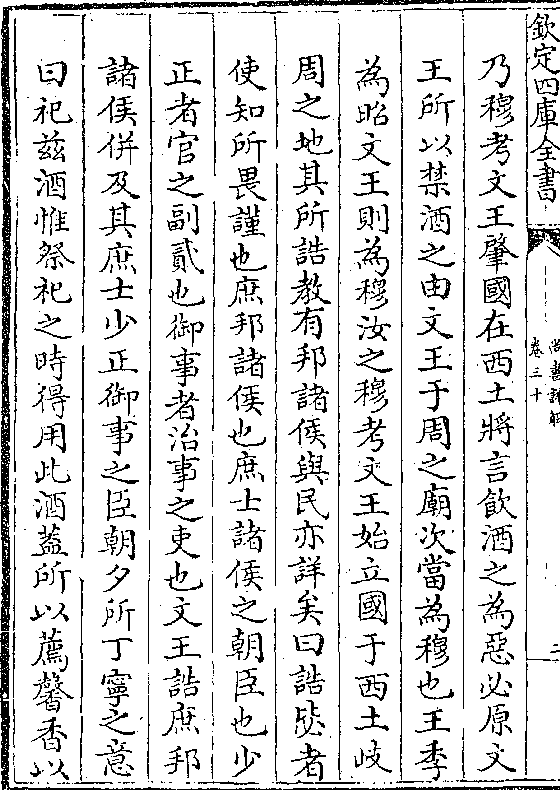 欽定四庫全書
尚書詳解
卷三十
乃穆考文王肇國在西土將言飲酒之為惡必原文
王所以禁酒之由文王于周之廟次當為穆也王季
為昭文王則為穆汝之穆考文王始立國于西土岐
周之地其所誥教有邦諸侯與民亦詳矣曰誥毖者
使知所畏謹也庶邦諸侯也庶士諸侯之朝臣也少
正者官之副貳也御事者治事之吏也文王誥庶邦
諸侯併及其庶士少正御事之臣朝夕所丁寧之意
曰祀茲酒惟祭祀之時得用此酒蓋所以薦馨香以